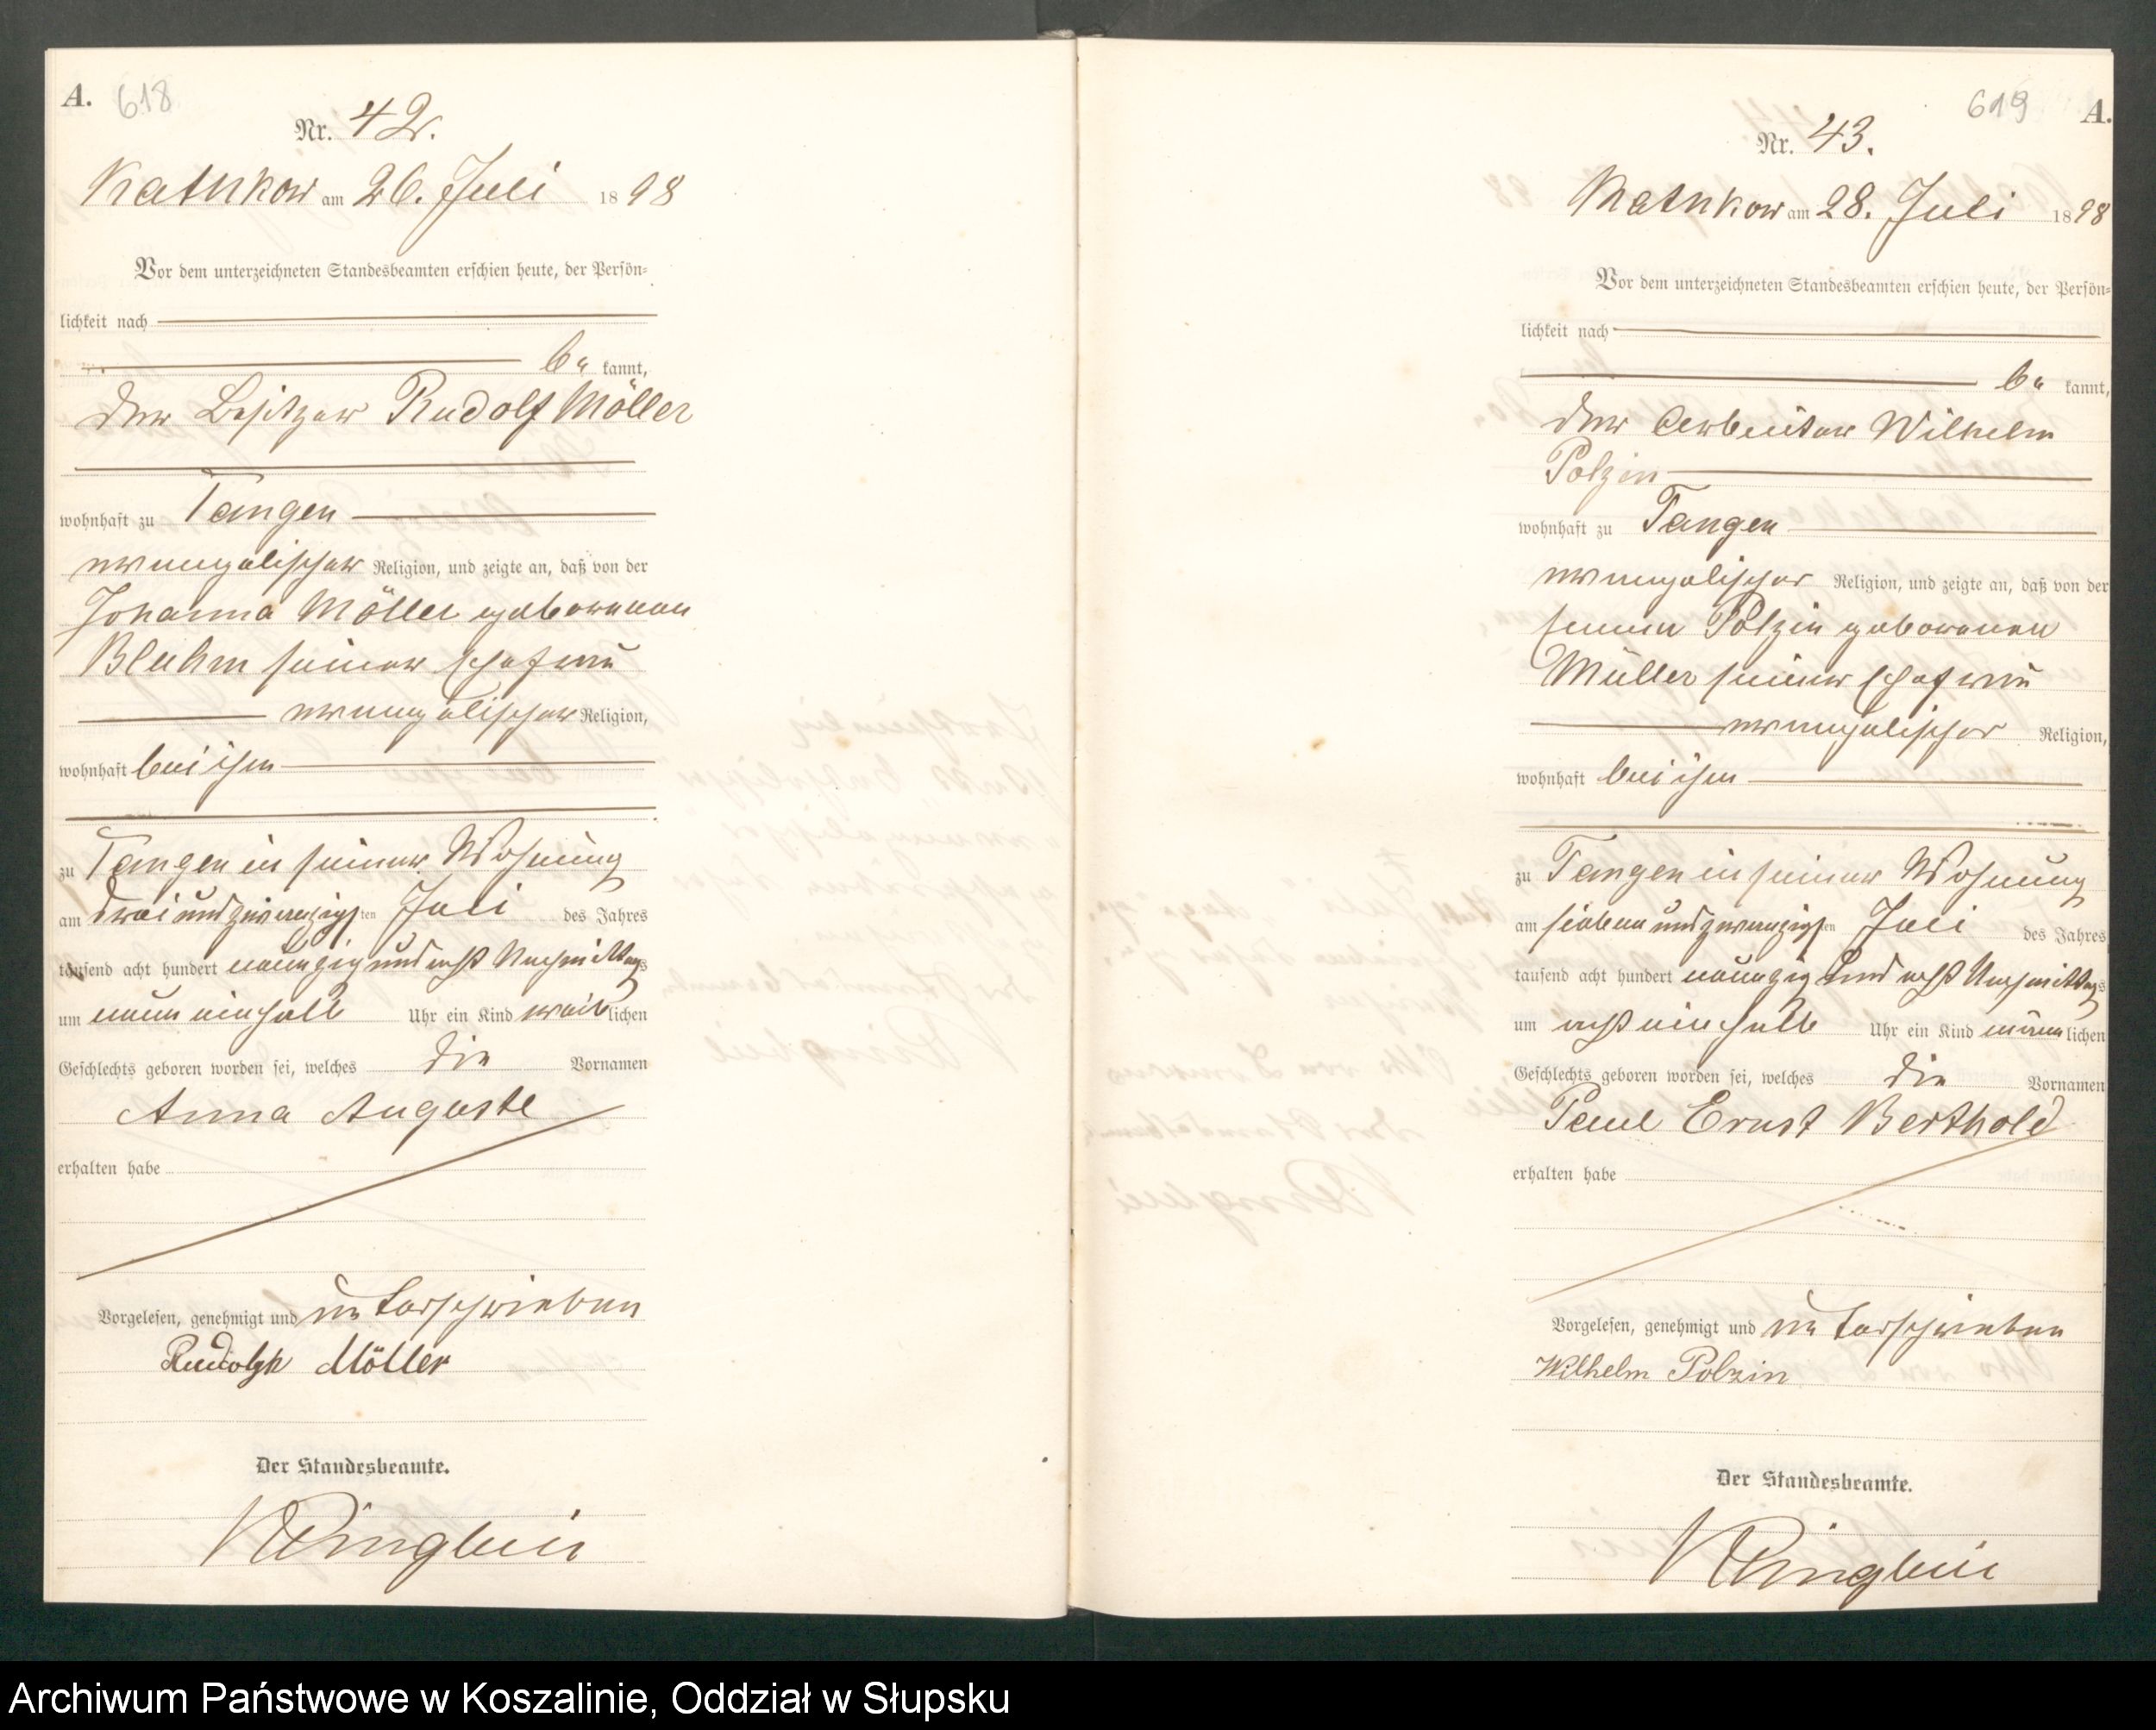 A. 618
Nr. 42.
Kathkow am 26. Juli 1898
Vor dem unterzeichneten Standesbeamten erschien heute, der Persön-
lichkeit nach
be kannt,
der Besitzer Rudolf Möller
wohnhaft zu Tangen
evangelischer Religion, und zeigte an, daß von der
Johanna Möller geborenen
Bluhm seiner Ehefrau
evangelischer Religion,
wohnhaft bei ihm
zu Tangen in seiner Wohnung
am drei und zwanzigsten Juli des Jahres
tausend acht hundert neunzig und acht Nachmittags
um neun ein halb Uhr ein Kind weiblichen
Geschlechts geboren worden sei, welches die Vornamen
Anna Auguste
erhalten habe
Vorgelesen, genehmigt und unterschrieben
Rudolph Möller
Der Standesbeamte.
619 A.
Nr. 43.
Kathkow am 28. Juli 1898
Vor dem unterzeichneten Standesbeamten erschien heute, der Persön-
lichkeit nach
be kannt,
der Arbeiter Wilhelm
Polzin
wohnhaft zu Tangen
evangelischer Religion, und zeigte an, daß von der
Polzin geborenen
Müller seiner Ehefrau
evangelischer Religion,
wohnhaft bei ihm
zu Tangen in seiner Wohnung
am sieben und zwanzigsten Juli des Jahres
tausend acht hundert neunzig und acht Nachmittags
um acht ein halb Uhr ein Kind männlichen
Geschlechts geboren worden sei, welches die Vornamen
Paul Ernst Berthold
erhalten habe
Vorgelesen, genehmigt und unterschrieben
Wilhelm Polzin
Der Standesbeamte.
Archiwum Państwowe w Koszalinie, Oddział w Słupsku